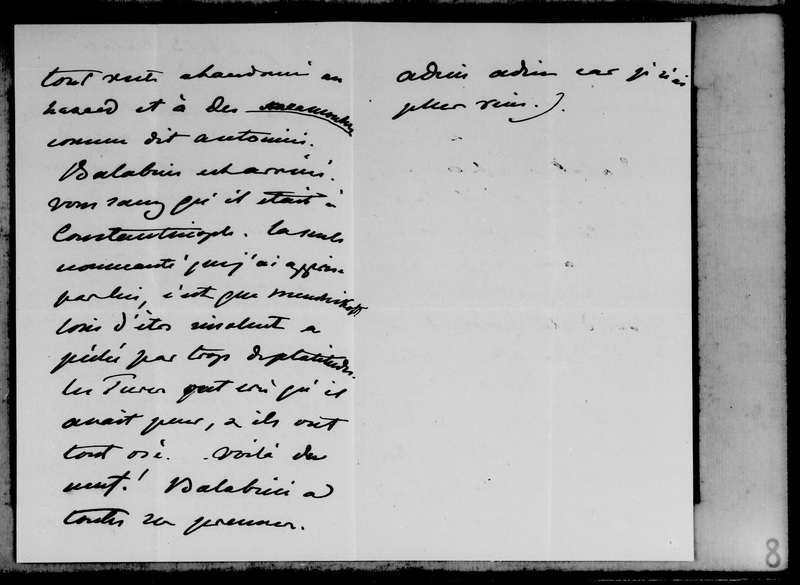 tout reste abandonné au
hazard et à des
comme dit Antonini.
Balabine est arrivé.
vous savez qu'il était à
Constantinople. la seule
nouveauté que j'ai apprise
par lui, c'est que Menchikoff
loin d'être insolent a
péché par trop de platitudes.
les Turcs ont cru qu'il
avait peur, & ils ont
tout osé. Voilà du
neuf! Balabine a
toutes les preuves.
adieu adieu car je n'ai
plus rien.
8